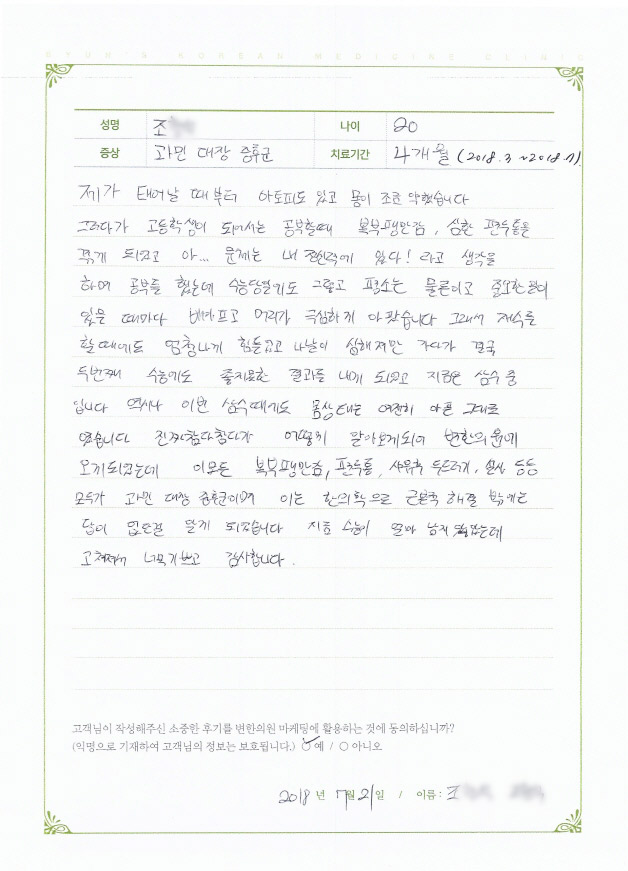 BYUN'S KOREAN MEDICINE CLINIC
성명 조 나이 20
증상 과민 대장 증후군 치료기간 4개월 (2018.3 ~2018.7)
제가 태어날 때부터 아토피도 있고 몸이 조금 약했습니다
그러다가 고등학생이 되어서는 공부할때 복부팽만감, 심한 편두통을
겪게 되었고 아... 문제는 내 정신력에 있다! 라고 생각을
하여 공부를 했는데 수능당일에도 그렇고 평소는 물론이고 중요한 일이
있을 때마다 배아프고 머리가 극심하게 아팠습니다 그래서 재수를
할때에도 엄청나게 힘들었고 나날이 심해지만 가다가 결국
두번째 수능에도 좋지못한 결과를 내게 되었고 지금은 삼수 중
입니다 역시나 이번 삼수때에도 몸상태는 여전히 아픈 그대로
였습니다 진짜참다참다가 어떻게 알아보게되어 변한의원에
오게되었는데 이 모든 복부팽만감, 편두통, 사유하 두드러기, 설사 등등
모두가 과민 대장 증후군이며 이는 한의학으로 근본적 해결 밖에는
답이 없는걸 알게 되었습니다 지금 수능이 얼마 남지 않았는데
고쳐져서 너무 기쁘고 감사합니다.
고객님이 작성해주신 소중한 후기를 변한의원 마케팅에 활용하는 것에 동의하십니까?
(익명으로 기재하여 고객님의 정보는 보호됩니다.) ○ 예 / ○ 아니오
2018 년 7월 21일 / 이름 : 조